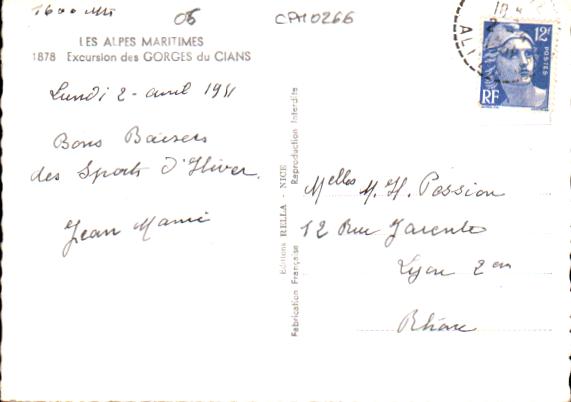 1600 alt
06
CPM0266
LES ALPES MARITIMES
1878 Excursion des GORGES du CIANS
Lundi 2 - avril 1951
Bons Baisers
des Sports d'Hiver.
Jean Marie
Editions RELLA - NICE
Fabrication Française Reproduction Interdite
12F
POSTES
RF
Melles M. H. Possion
12 Rue Jarente
Lyon 2em
Rhône